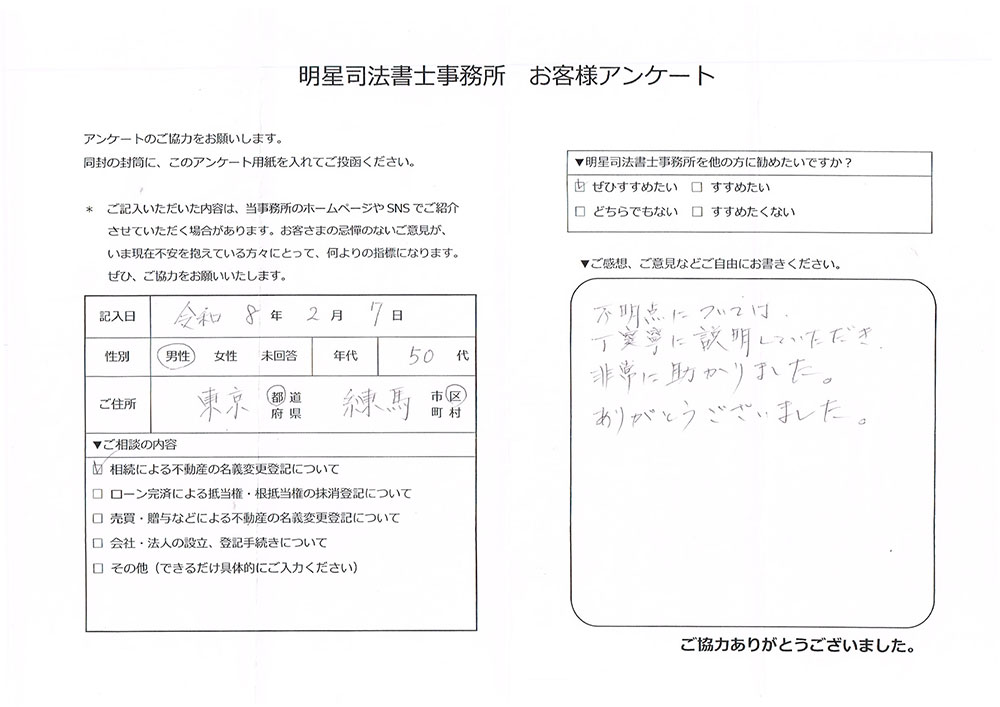 明星司法書士事務所　お客様アンケート
アンケートのご協力をお願いします。
同封の封筒に、このアンケート用紙を入れてご投函ください。
＊　ご記入いただいた内容は、当事務所のホームページや SNS でご紹介
させていただく場合があります。お客さまの忌憚のないご意見が、
いま現在不安を抱えている方々にとって、何よりの指標になります。
ぜひ、ご協力をお願いいたします。
記入日　令和 8 年 2 月 7 日
性別　男性　女性　未回答　年代　50 代
ご住所　東京 都 道 府 県　練馬 市 区 町 村
▼ご相談の内容
☑ 相続による不動産の名義変更登記について
□ ローン完済による抵当権・根抵当権の抹消登記について
□ 売買・贈与などによる不動産の名義変更登記について
□ 会社・法人の設立、登記手続きについて
□ その他（できるだけ具体的にご入力ください）
▼明星司法書士事務所を他の方に勧めたいですか？
☑ ぜひすすめたい　□ すすめたい
□ どちらでもない　□ すすめたくない
▼ご感想、ご意見などご自由にお書きください。
不明点については、
丁寧寧に説明していただき、
非常に助かりました。
ありがとうございました。
ご協力ありがとうございました。